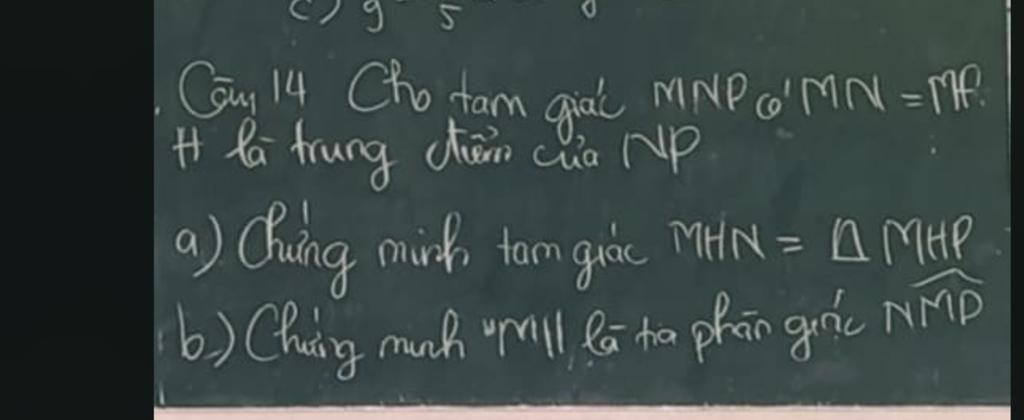 c) y 5 y
Câu 14 Cho tam giác MNP có MN = MP.
H là trung điểm của NP
a) Chứng minh tam giác MHN = Δ MHP
b) Chứng minh MH là tia phân giác NMP